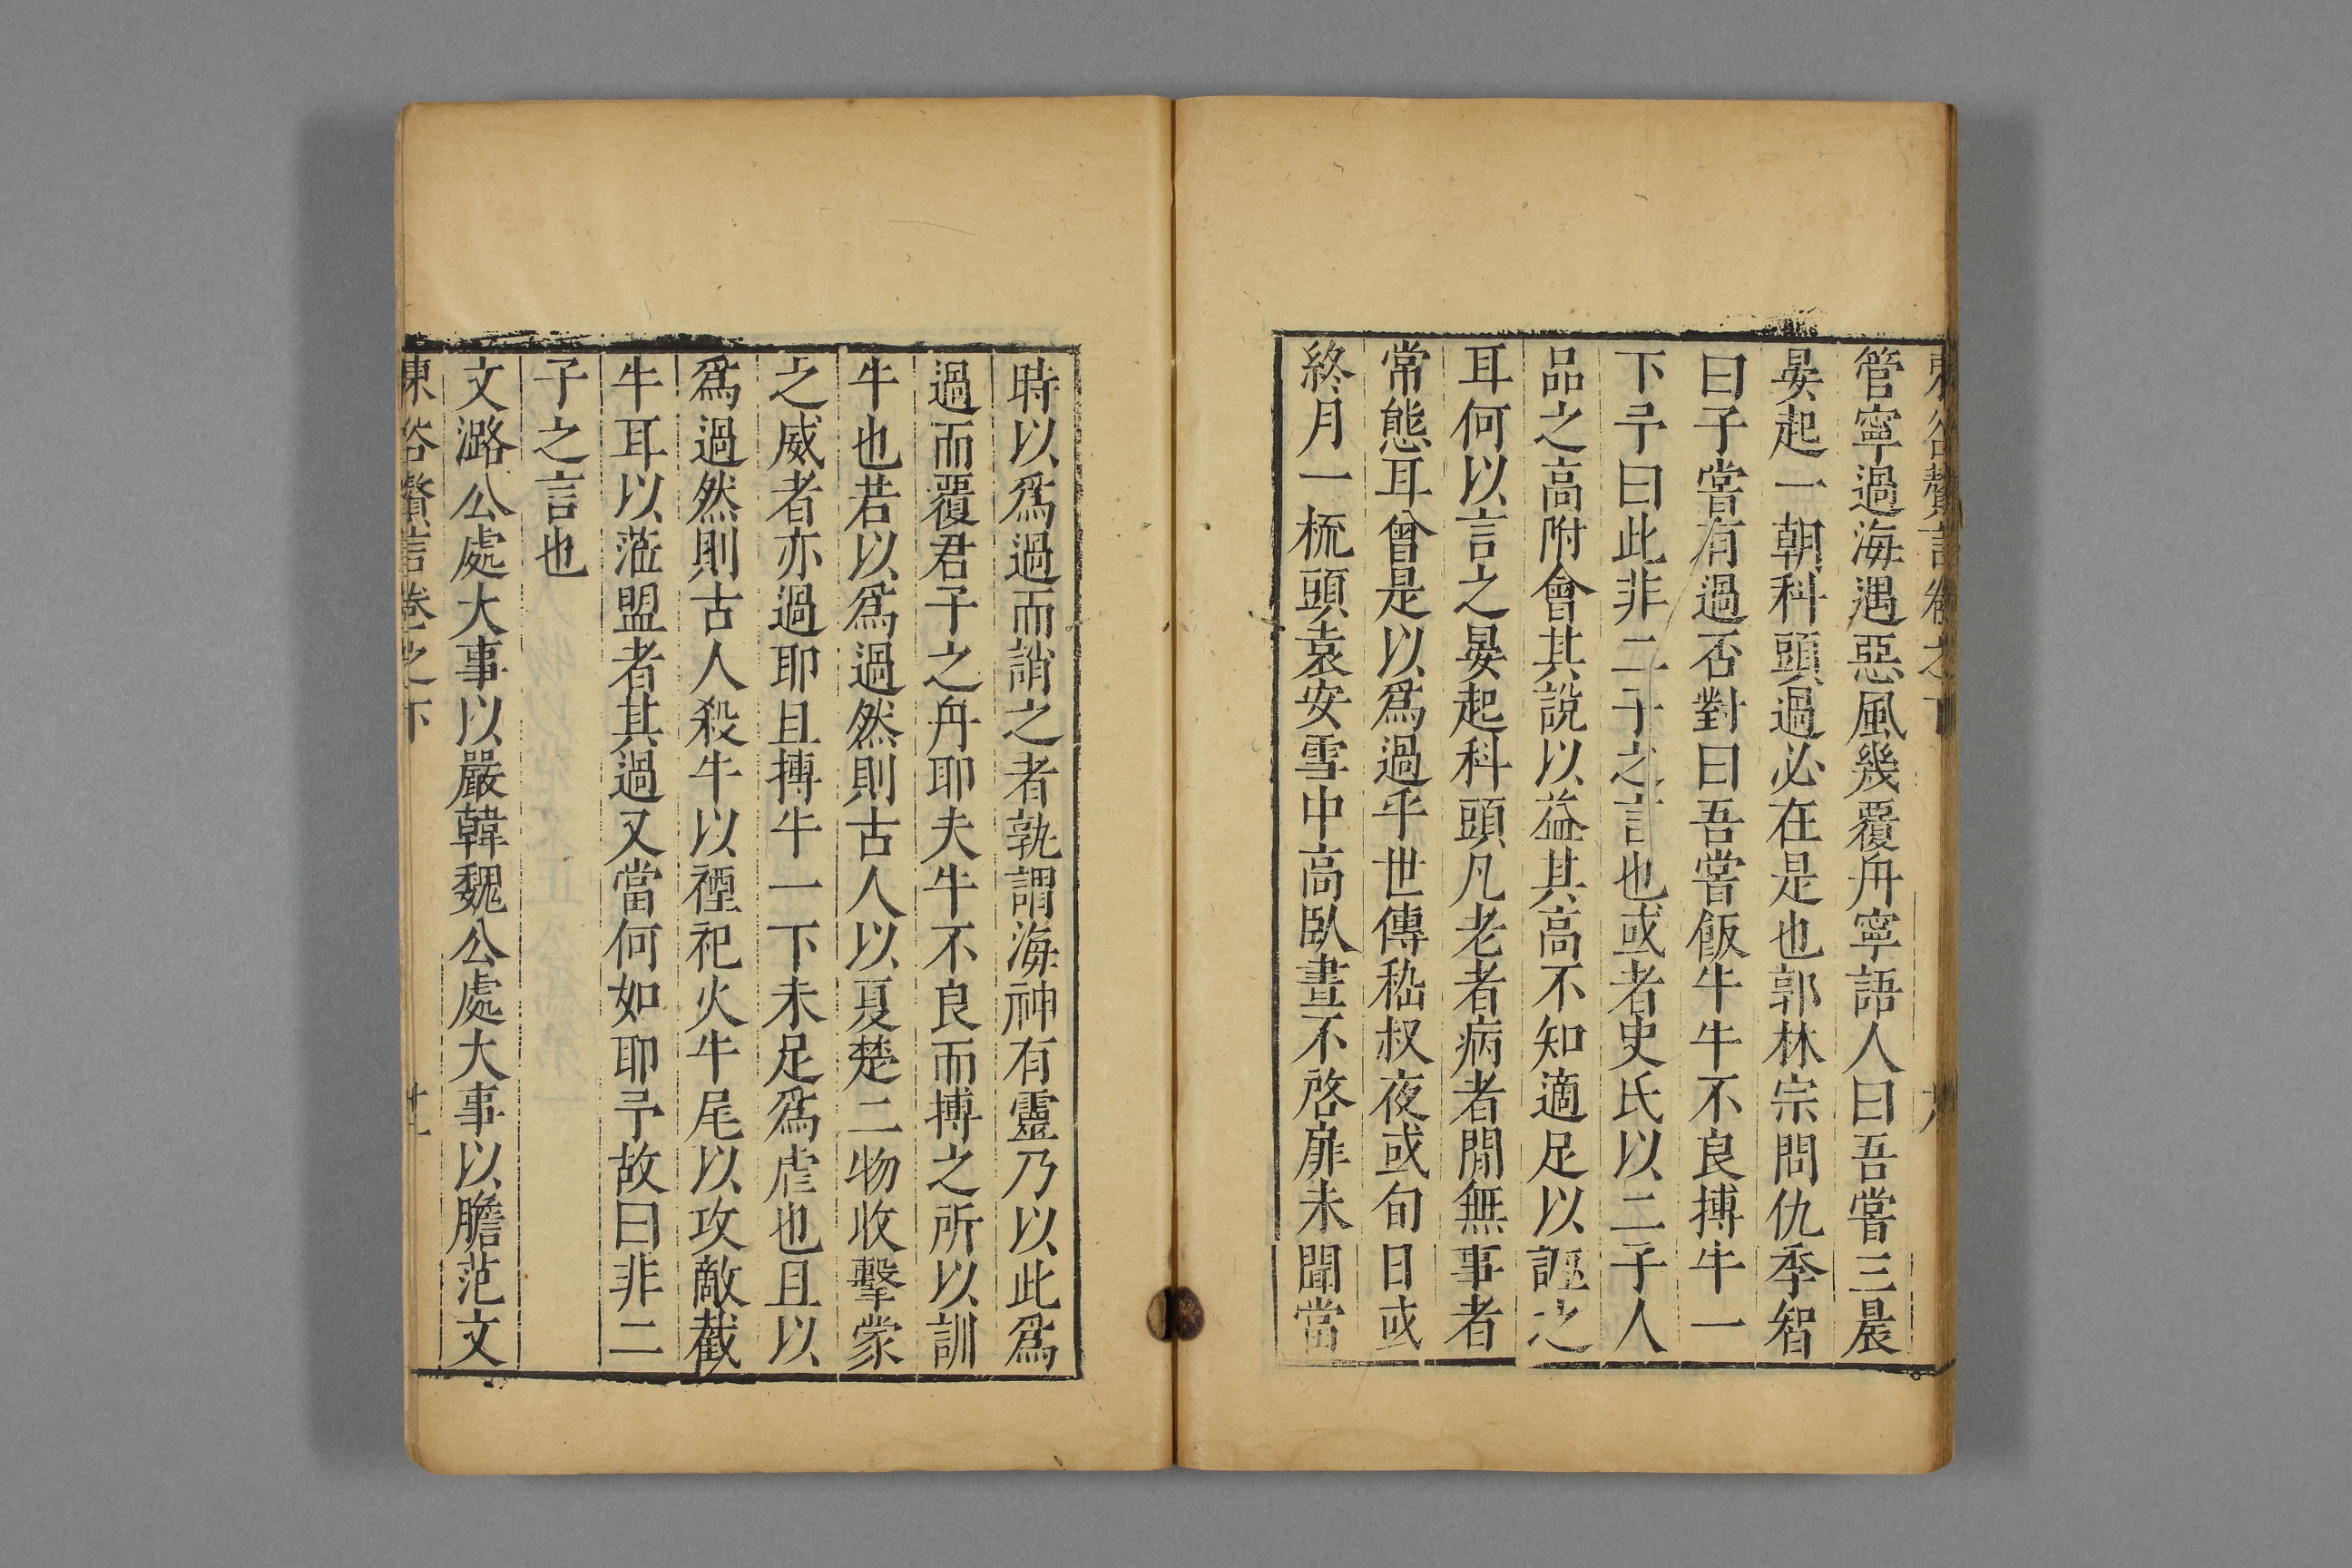 東谷贅言卷之下
管寧過海遇惡風幾覆舟寧語人曰吾嘗三晨
晏起一朝科頭過必在是也郭林宗問仇季智
曰子嘗有過否對曰吾嘗飯牛牛不良搏牛一
下予曰此非二子之言也或者史氏以二子人
品之高附會其說以益其高不知適足以誣之
耳何以言之晏起科頭凡老者病者閒無事者
常態耳曾是以爲過乎世傳嵇叔夜或旬日或
終月一梳頭袁安雪中高臥晝不啓扉未聞當
時以爲過而誚之者孰謂海神有靈乃以此爲
過而覆君子之舟耶夫牛不良而搏之所以訓
牛也若以爲過然則古人以夏楚二物收擊蒙
之威者亦過耶且搏牛一下未足爲虐也且以
爲過然則古人殺牛以禋祀火牛尾以攻敵截
牛耳以涖盟者其過又當何如耶予故曰非二
子之言也
文潞公處大事以嚴韓魏公處大事以膽范文
東谷贅言卷之下